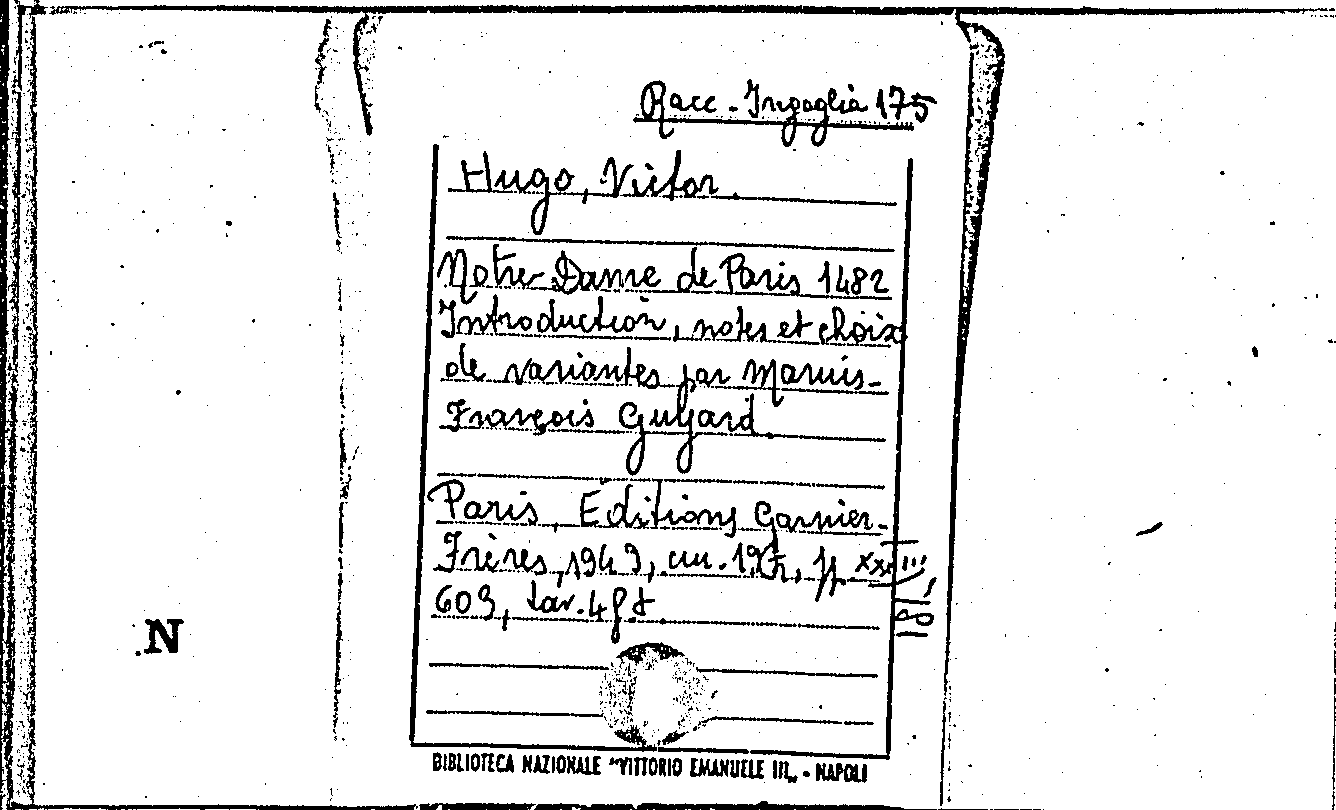 Racc. Ingaglia 175
Hugo, Victor.
Notre-Dame de Paris 1482
Introduction, notes et choix
de variantes par Marius-
François Guyard.
Paris, Éditions Garnier-
Frères, 1949, cm. pp
609, tav. 4 f. t.
N
BIBLIOTECA NAZIONALE "VITTORIO EMANUELE III„ - NAPOLI